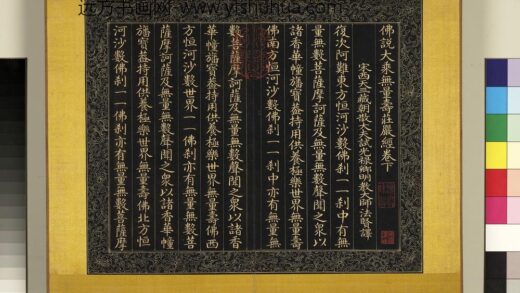 远方书画网 www.yfshuhua.com
佛說大乘無量壽莊嚴經卷下
宋西天三藏朝散大夫試光祿卿明教大師法賢譯
復次阿難東方恒河沙數佛剎一一剎中有無
量無數菩薩摩訶薩及無量無數聲聞之眾以
諸香華幢幡寶蓋持用供養極樂世界無量壽
佛南方恒河沙數佛剎一一剎中亦有無量無
數菩薩摩訶薩及無量無數聲聞之眾以諸香
華幢幡寶蓋持用供養極樂世界無量壽佛西
方恒河沙數世界一一佛剎亦有無量無數菩
薩摩訶薩及無量無數聲聞之眾以諸香華幢
幡寶蓋持用供養極樂世界無量壽佛北方恒
河沙數佛剎一一佛剎亦有無量無數菩薩摩